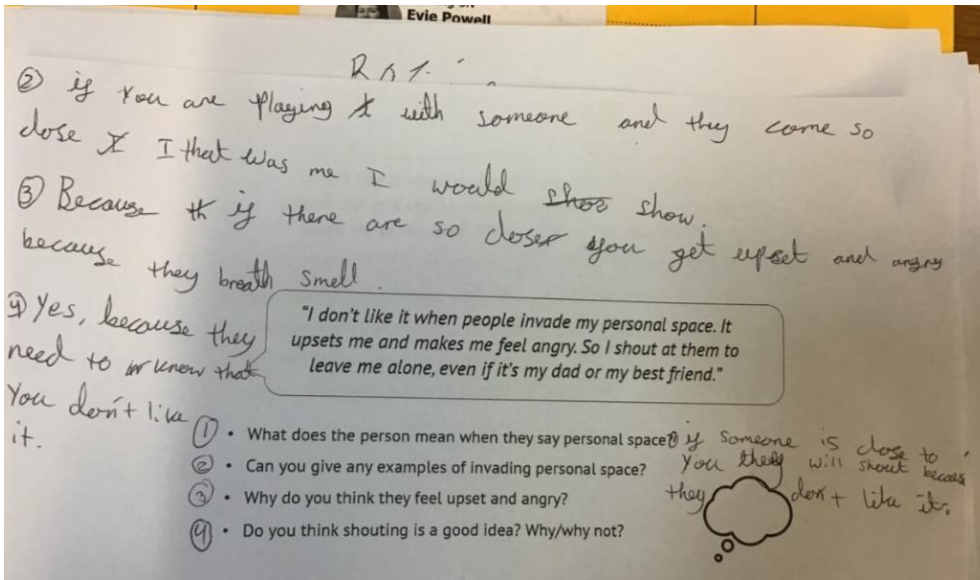 Evie Powell
② if you are playing with someone and they come so
close I that was me I would show.
③ Because if there are so closer you get upset and angry
because they breath smell.
④ Yes, because they
need to know that
You don't like
it.
"I don't like it when people invade my personal space. It
upsets me and makes me feel angry. So I shout at them to
leave me alone, even if it's my dad or my best friend."
① • What does the person mean when they say personal space?
② • Can you give any examples of invading personal space?
③ • Why do you think they feel upset and angry?
④ • Do you think shouting is a good idea? Why/why not?
① if someone is close to
you they will shout because
they don't like it.